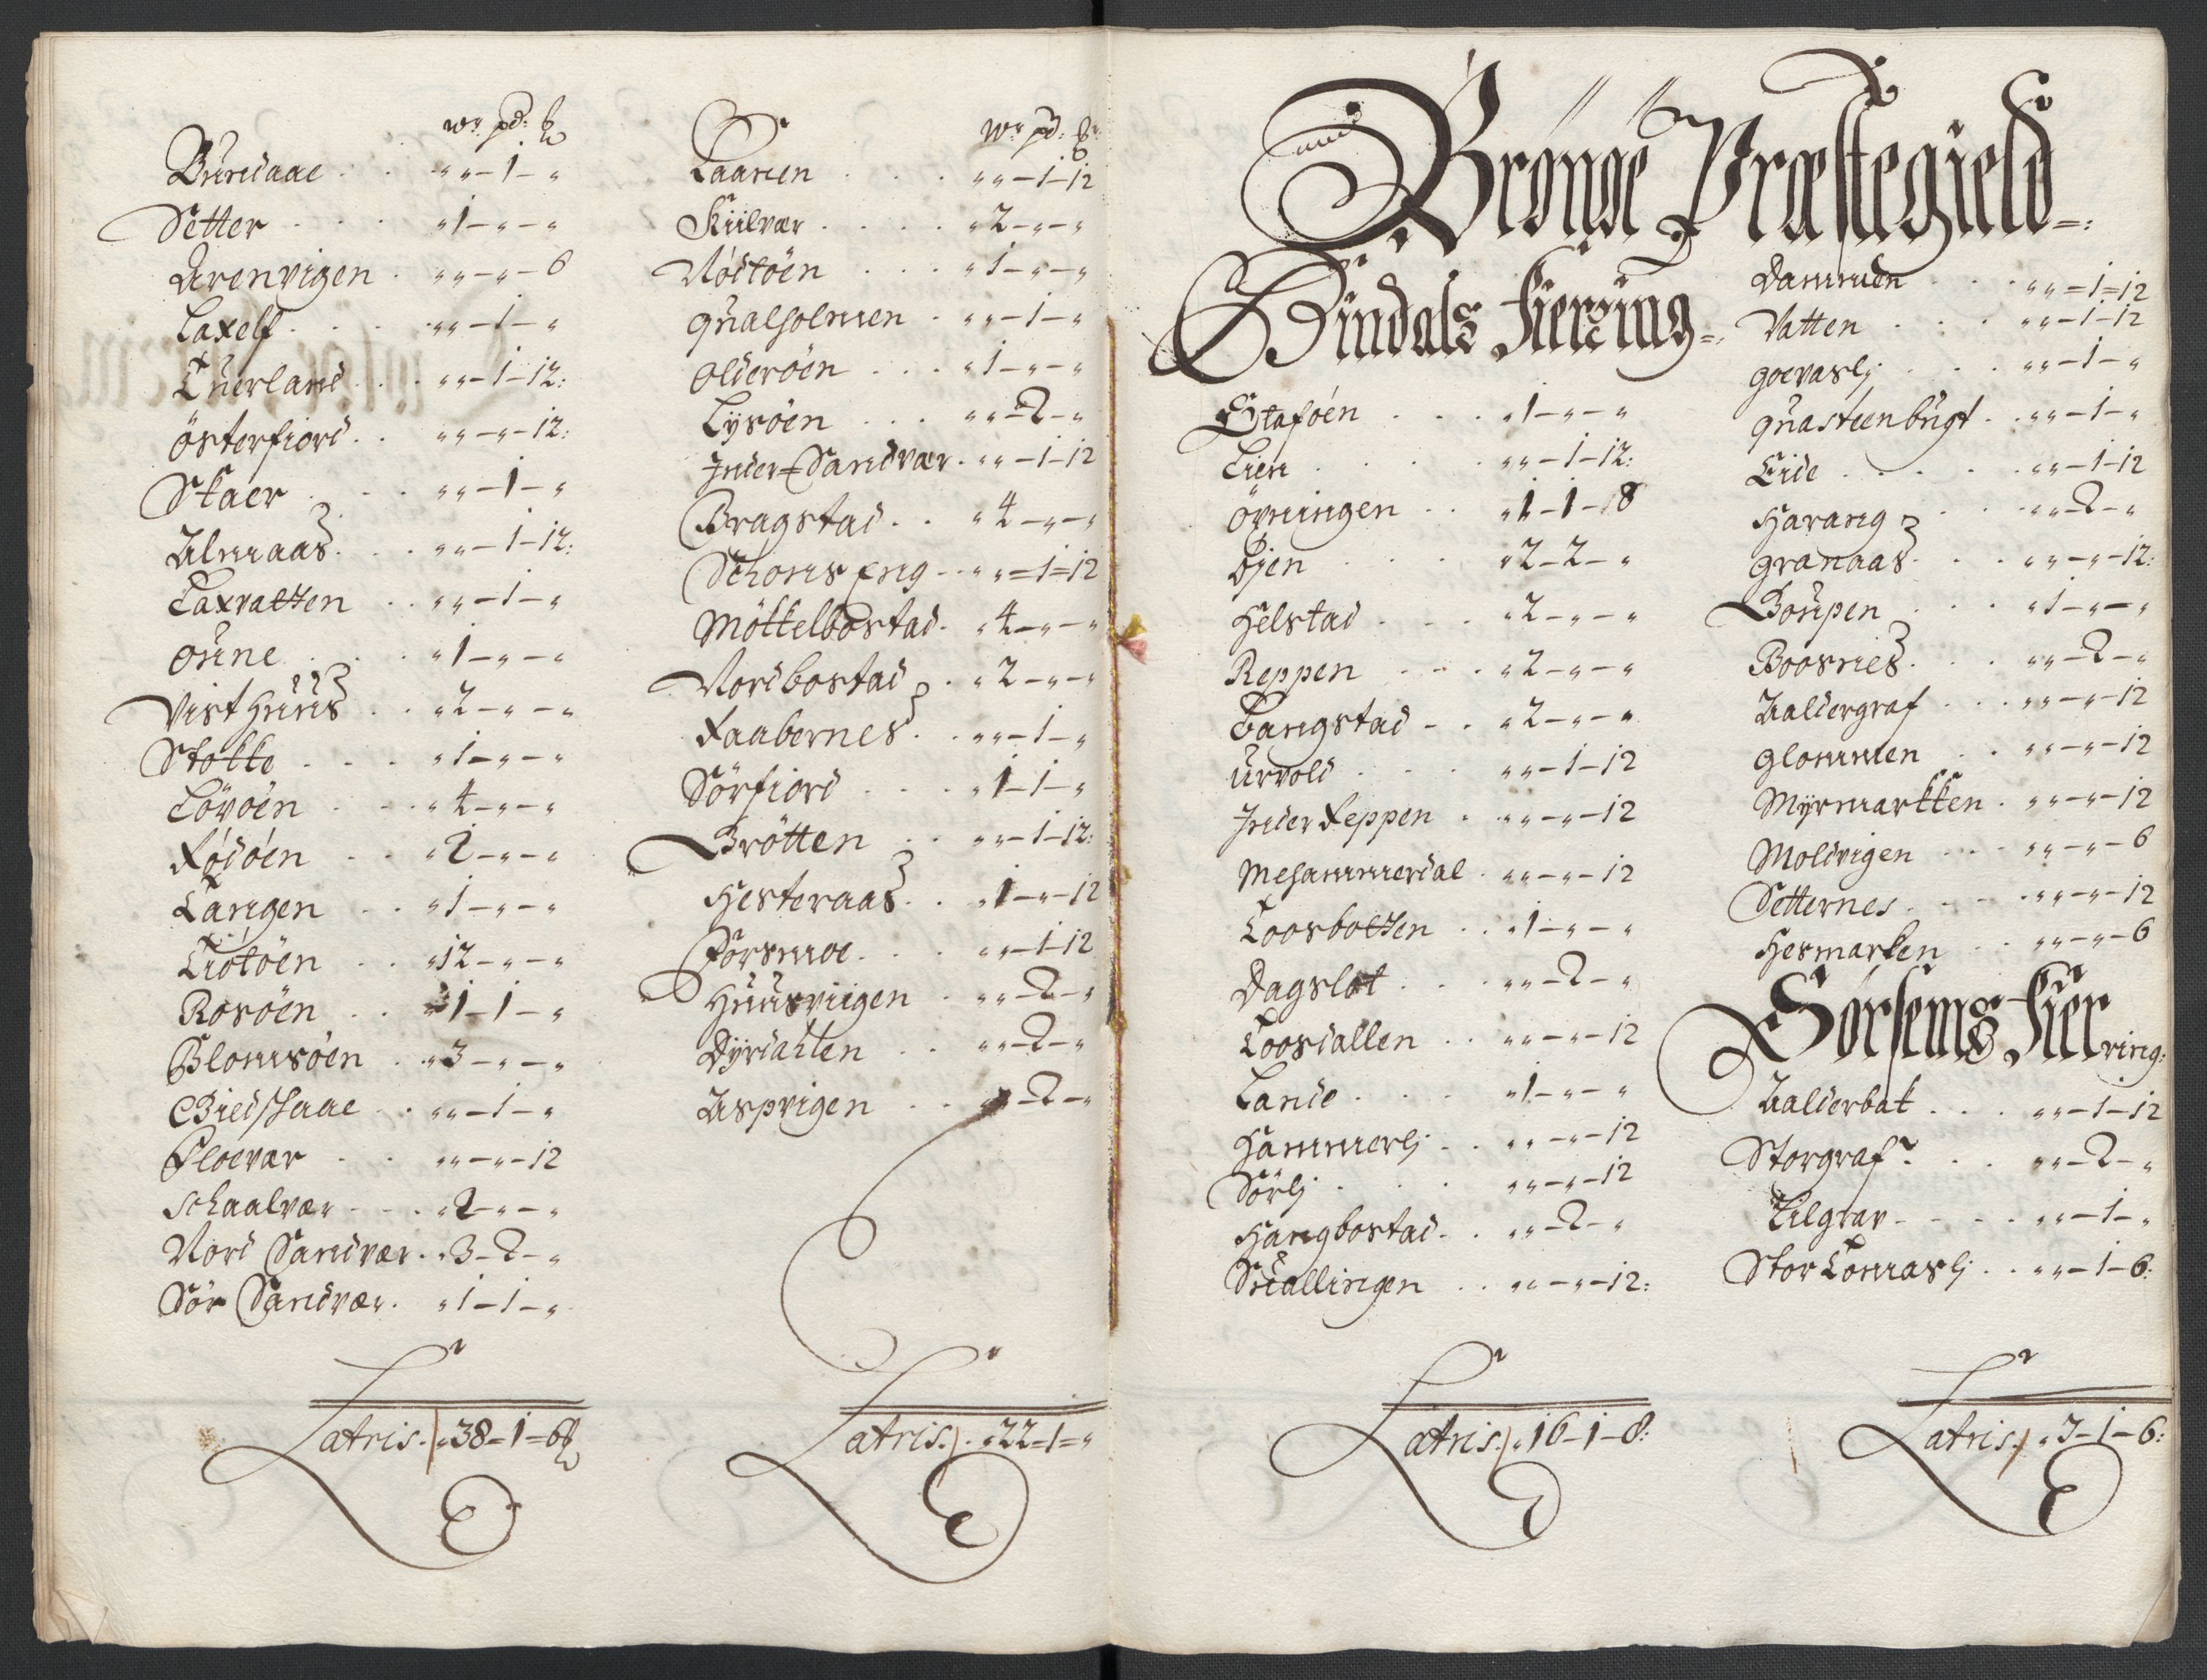 wr. pd: ℔
Bundaae . . „ „ - 1 - „
Setter . . . „ 1 - „ - „
Arenvigen . „ „ - „ - 6
Laxelf . . . „ „ - 1 - „
Tuerland . . „ „ - 1 - 12:
österfiord . . „ „ - „ - 12:
Skaer . . . „ „ - 1 - „
Almaas . . . „ „ - 1 - 12:
Laxvatten . . „ „ - 1 - „
oune . . . „ 1 - „ - „
Vist huus . . „ 2 - „ - „
Stokke . . . „ 1 - „ - „
Løvøen . . . „ 4 - „ - „
Rødøen . . „ 2 - „ - „
Tangen . . „ 1 - „ - „
Tiøtøen . . „ 12 - „ - „
Rosøen . . „ 1 - 1 - „
Blomsøen . „ 3 - „ - „
Giedskaae . . „ „ - 1 - „
Floevær . . „ „ - „ - 12
Schaalvær . . „ 2 - „ - „
Nord Sandvær . „ 3 - 2 - „
Sør Sandvær . „ 1 - 1 - „
Latris. „ 38 - 1 - 6 ℔
wr. pd: ℔
Laanen . . . „ „ - 1 - 12
Kiilvær . . . . „ 2 - „ - „
Nôdtöen . . . „ 1 - „ - „
qualholmen . „ „ - 1 - „
olderöen . . . „ 1 - „ - „
Lysöen . . . „ „ - 2 - „
Inder Sandvær . „ „ - 1 - 12
Bragstad . . „ 4 - „ - „
Schoms Eng . . „ „ = 1 = 12
Møkkelbostad . „ 4 - „ - „
Nordbostad . „ 2 - „ - „
Faabernes . . „ „ - 1 - „
Sörfiord . . . „ 1 - 1 - „
Brötten . . „ „ - 1 - 12:
Hesteraas . . „ 1 - „ - 12
Forsmoe . . . „ „ - 1 - 12
Huusviigen . „ „ - 2 - „
Dyrdahlen . . „ „ - 2 - „
Aspvigen . . „ „ - 2 - „
Latris. „ 22 - 1 = „
Brønøe Præstegield
Bindals Fierzing
Staføen . . . „ 1 - „ - „
Lien . . . . „ „ - 1 - 12:
Övningen . . „ 1 - 1 - 18
Öjen . . . „ 2 - 2 - „
Helstad . . . „ 2 - „ - „
Reppen . . . „ 2 - „ - „
Bangstad . . „ 2 - „ - „
Urvold . . . „ „ - 1 - 12
Inder Reppen . „ „ - „ - 12
Mehammerdal . „ „ - „ - 12
Toosbotten . . „ 1 - „ - „
Dagslot . . . „ „ - 2 - „
Toosdallen . . „ „ - „ - 12
Lande . . . „ 1 - „ - „
Hammerlj . . „ „ - „ - 12
Sörlj . . . „ „ - „ - 12
Hangbostad . . „ „ - 2 - „
Skallingen . . „ „ - „ - 12:
Latris. „ 16 - 1 - 8:
Dammen . . „ „ = 1 = 12
Vatten . . . „ „ - 1 - 12
goevaslj . . . „ „ - 1 - „
quasteenbugt . . „ „ - 1 - „
Eide . . . . „ „ - 1 - 12
Harang . . . „ „ - 2 - „
granaas . . . „ „ - „ - 12:
Goupen . . . „ 1 - „ - „
Boosnes . . . „ „ - 2 - „
Aaldergraf . . . „ „ - „ - 12
glommen . . „ „ - „ - 12
Myrmarkken . „ „ - „ - 12
Moldvigen . . . „ „ - „ - 6
Setternes . . . „ „ - „ - 12
Hesmarken . . „ „ - „ - 6
Sørsems Fierring:
Aalderbak . . . „ „ - 1 - 12
Storgraf . . . „ „ - 2 - „
Lilgrav . . . „ „ - 1 - „
Stor Tomaslj . . „ „ - 1 - 6:
Latris. „ 3 - 1 - 6: